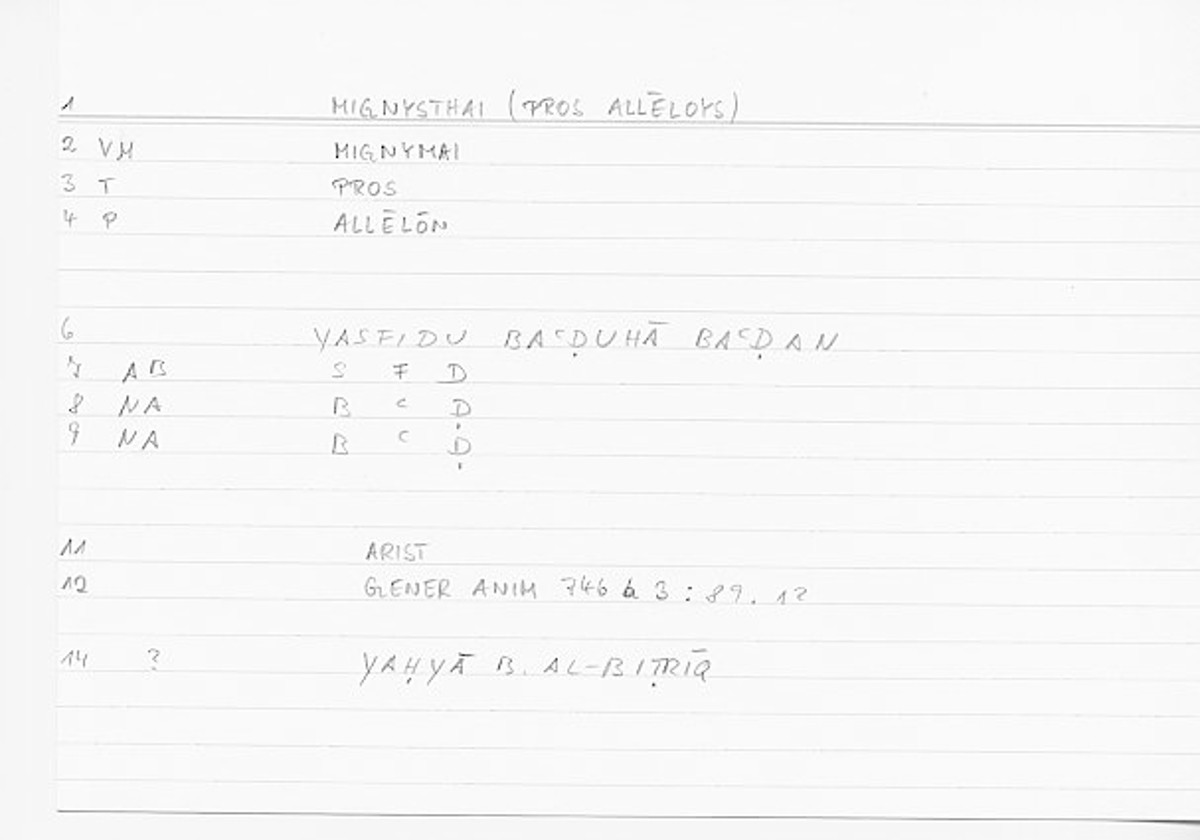 1 MIGNYSTHAI (PROS ALLĒLOYS)
2 VM MIGNYMAI
3 T PROS
4 P ALLĒLŌN
6 YASFIDU BAʿḌUHĀ BAʿḌAN
7 AB S F D
8 NA B ʿ Ḍ
9 NA B ʿ Ḍ
11 ARIST
12 GENER ANIM 746 a 3 : 89. 12
14 ? YAḤYĀ B. AL-BIṬRĪQ